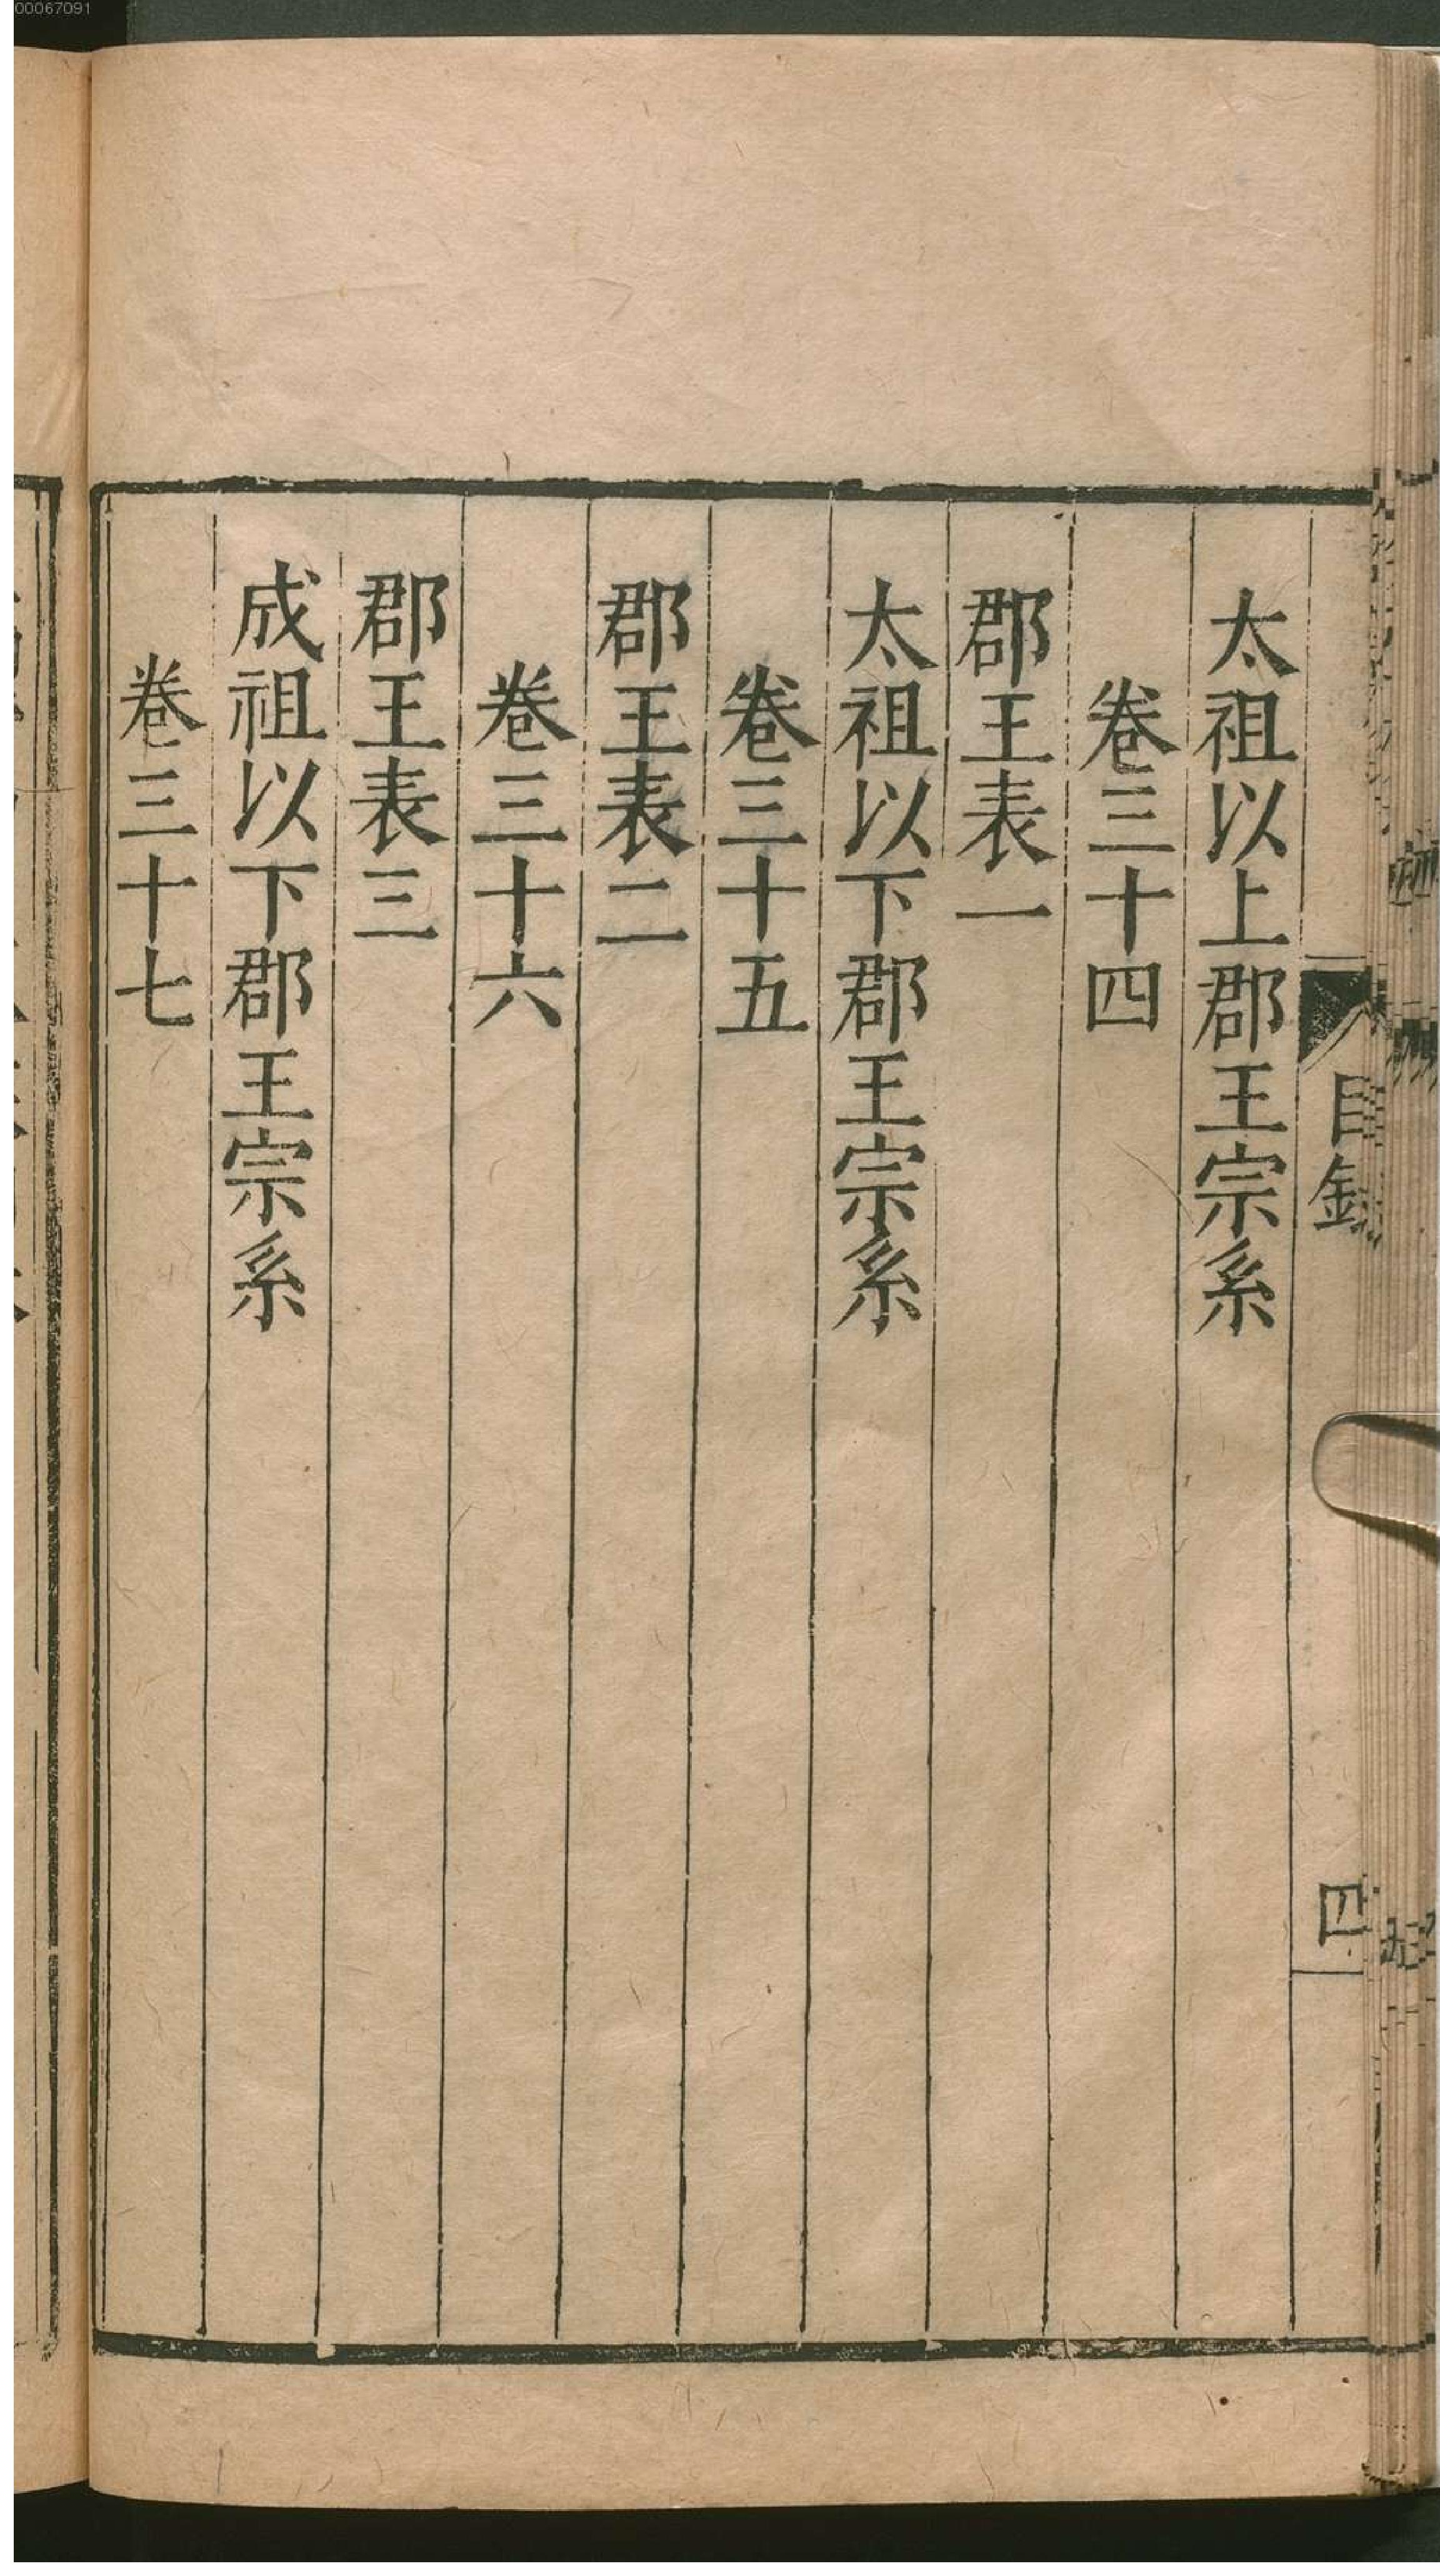 00067091
目錄
四
太祖以上郡王宗系
卷三十四
郡王表一
太祖以下郡王宗系
卷三十五
郡王表二
卷三十六
郡王表三
成祖以下郡王宗系
卷三十七